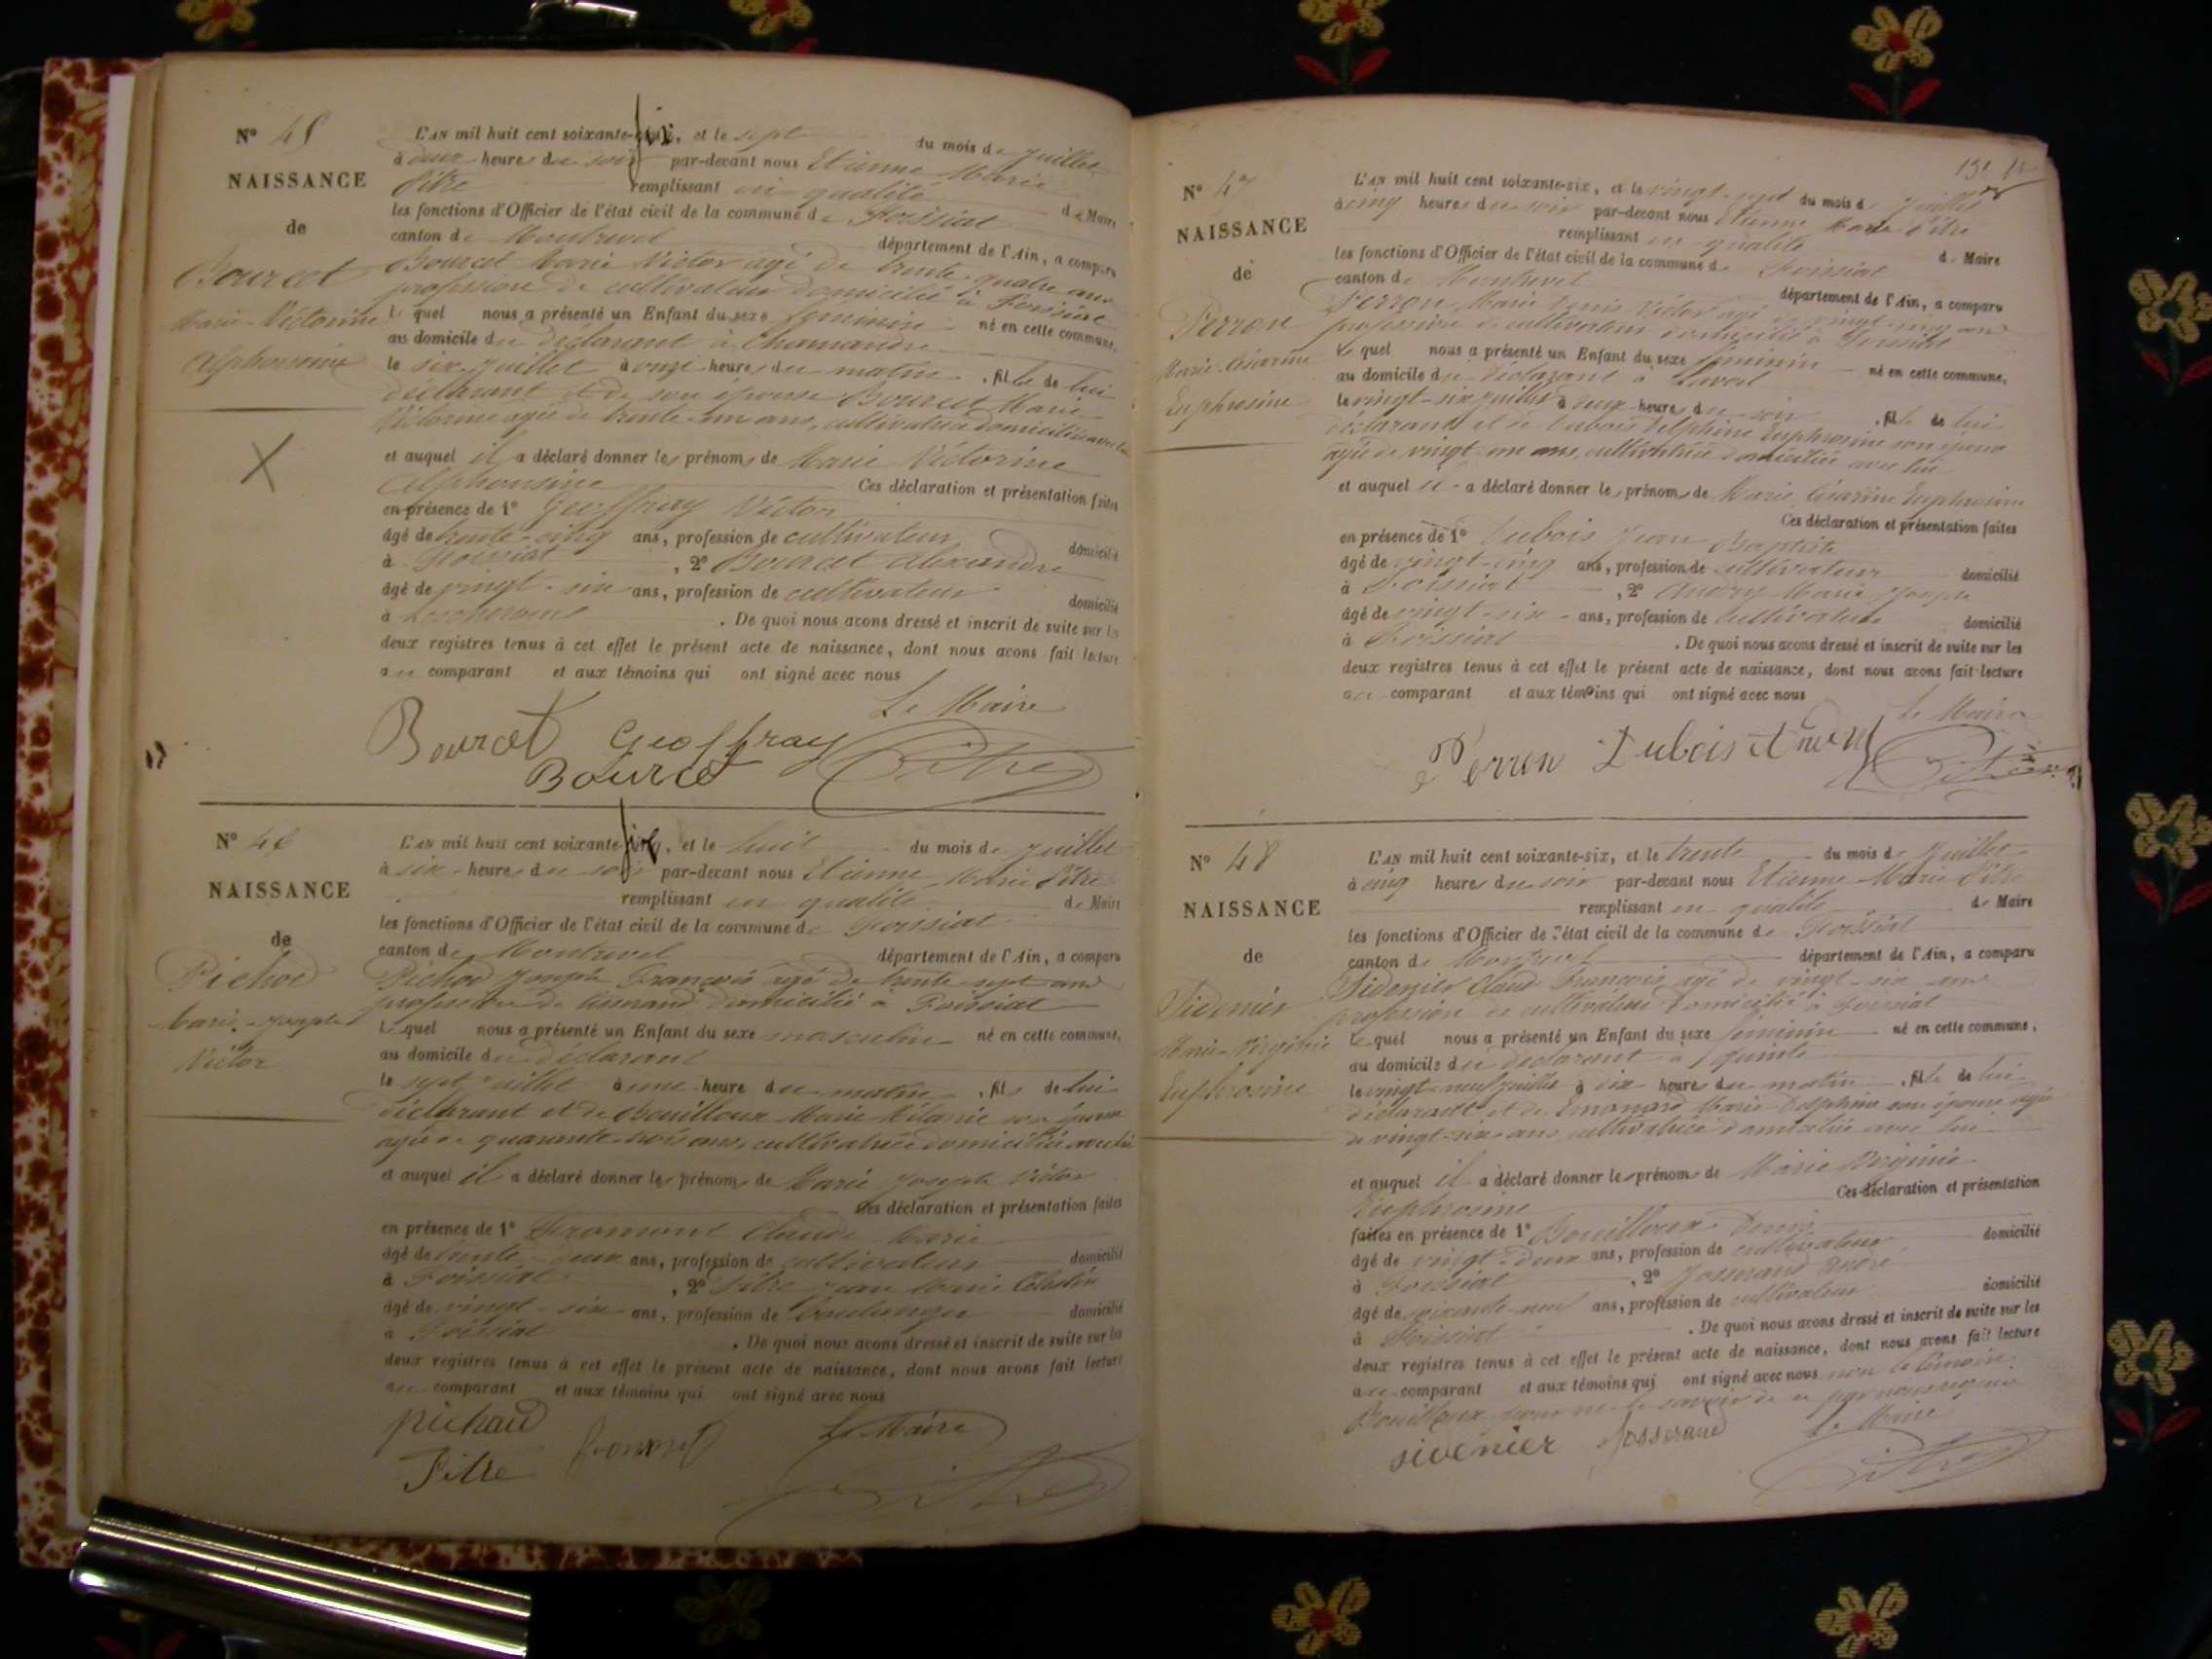 N° 45
NAISSANCE
de
Bourcet
Marie-Victorine
Alphonsine
L'AN mil huit cent soixante-six, et le sept du mois de juillet
à deux heures du soir par-devant nous Etienne Marie
Pitre remplissant en qualité de Maire
les fonctions d'Officier de l'état civil de la commune de Foissiat
canton de Montrevel département de l'Ain, a comparu
Bourcet Marie Victor agé de trente-quatre ans
profession de cultivateur domicilié à Foissiat
lequel nous a présenté un Enfant du sexe féminin né en cette commune,
au domicile du déclarant à Chamandre
le six juillet à onze heures du matin, fille de lui
déclarant et de son épouse Bourcet Marie
Victorine agée de trente-un ans, cultivatrice domiciliée avec lui
et auquel il a déclaré donner les prénoms de Marie Victorine
Alphonsine Ces déclaration et présentation faites
en présence de 1° Geoffray Victor
âgé de trente-cinq ans, profession de cultivateur domicilié
à Foissiat, 2° Bourcet Alexandre
âgé de vingt-six ans, profession de cultivateur domicilié
à Lescheroux. De quoi nous avons dressé et inscrit de suite sur les
deux registres tenus à cet effet le présent acte de naissance, dont nous avons fait lecture
au comparant et aux témoins qui ont signé avec nous
Le Maire
Bourcet Geoffray
Bourcet Pitre
N° 46
NAISSANCE
de
Pichod
Marie-Joseph
Victor
L'AN mil huit cent soixante-six, et le huit du mois de juillet
à six heures du soir par-devant nous Etienne Marie Pitre
remplissant en qualité de Maire
les fonctions d'Officier de l'état civil de la commune de Foissiat
canton de Montrevel département de l'Ain, a comparu
Pichod Joseph François agé de trente-sept ans
profession de tisserand domicilié à Foissiat
lequel nous a présenté un Enfant du sexe masculin né en cette commune,
au domicile du déclarant
le sept juillet à une heure du matin, fils de lui
déclarant et de Bouilloux Marie Mélanie son épouse
agée de quarante-trois ans, cultivatrice domiciliée avec lui
et auquel il a déclaré donner les prénoms de Marie Joseph Victor
Ces déclaration et présentation faites
en présence de 1° Fromont Claude Marie
âgé de trente-deux ans, profession de cultivateur domicilié
à Foissiat, 2° Pitre Jean Marie Célestin
âgé de vingt-six ans, profession de boulanger domicilié
à Foissiat. De quoi nous avons dressé et inscrit de suite sur les
deux registres tenus à cet effet le présent acte de naissance, dont nous avons fait lecture
au comparant et aux témoins qui ont signé avec nous
pichaud fromont Le Maire
Pitre Pitre
N° 47
NAISSANCE
de
Perron
Marie Césarine
Euphrosine
L'AN mil huit cent soixante-six, et le vingt-sept du mois de juillet
à cinq heures du soir par-devant nous Etienne Marie Pitre
remplissant en qualité de Maire
les fonctions d'Officier de l'état civil de la commune de Foissiat
canton de Montrevel département de l'Ain, a comparu
Perron Marie Denis Victor agé de vingt-cinq ans
profession de cultivateur domicilié à Foissiat
lequel nous a présenté un Enfant du sexe féminin né en cette commune,
au domicile du déclarant à
le vingt-six juillet à deux heures du soir, fille de lui
déclarant et de Dubois Delphine Euphrosine son épouse
agée de vingt-un ans, cultivatrice domiciliée avec lui
et auquel il a déclaré donner les prénoms de Marie Césarine Euphrosine
Ces déclaration et présentation faites
en présence de 1° Dubois Jean Baptiste
âgé de vingt-cinq ans, profession de cultivateur domicilié
à Foissiat, 2° Marie Joseph
âgé de vingt-six ans, profession de cultivateur domicilié
à Foissiat. De quoi nous avons dressé et inscrit de suite sur les
deux registres tenus à cet effet le présent acte de naissance, dont nous avons fait lecture
au comparant et aux témoins qui ont signé avec nous
Le Maire
Perron Dubois Pitre
N° 48
NAISSANCE
de
Sidenier
Marie-Virginie
Euphrosine
L'AN mil huit cent soixante-six, et le trente du mois de juillet
à cinq heures du soir par-devant nous Etienne Marie Pitre
remplissant en qualité de Maire
les fonctions d'Officier de l'état civil de la commune de Foissiat
canton de Montrevel département de l'Ain, a comparu
Sidenier Claude François agé de vingt-six ans
profession de cultivateur domicilié à Foissiat
lequel nous a présenté un Enfant du sexe féminin né en cette commune,
au domicile du déclarant à
le vingt-neuf juillet à dix heures du matin, fille de lui
déclarant et de Marie Delphine son épouse agée
de vingt-six ans cultivatrice domiciliée avec lui
et auquel il a déclaré donner les prénoms de Marie Virginie
Euphrosine Ces déclaration et présentation
faites en présence de 1° Bouilloux Denis domicilié
âgé de vingt-deux ans, profession de cultivateur
à Foissiat, 2° Josserand André
âgé de soixante-neuf ans, profession de cultivateur domicilié
à Foissiat. De quoi nous avons dressé et inscrit de suite sur les
deux registres tenus à cet effet le présent acte de naissance, dont nous avons fait lecture
au comparant et aux témoins qui ont signé avec nous non le témoin
Bouilloux pour ne le savoir de ce par nous requis
sidenier Josserand Le Maire
Pitre